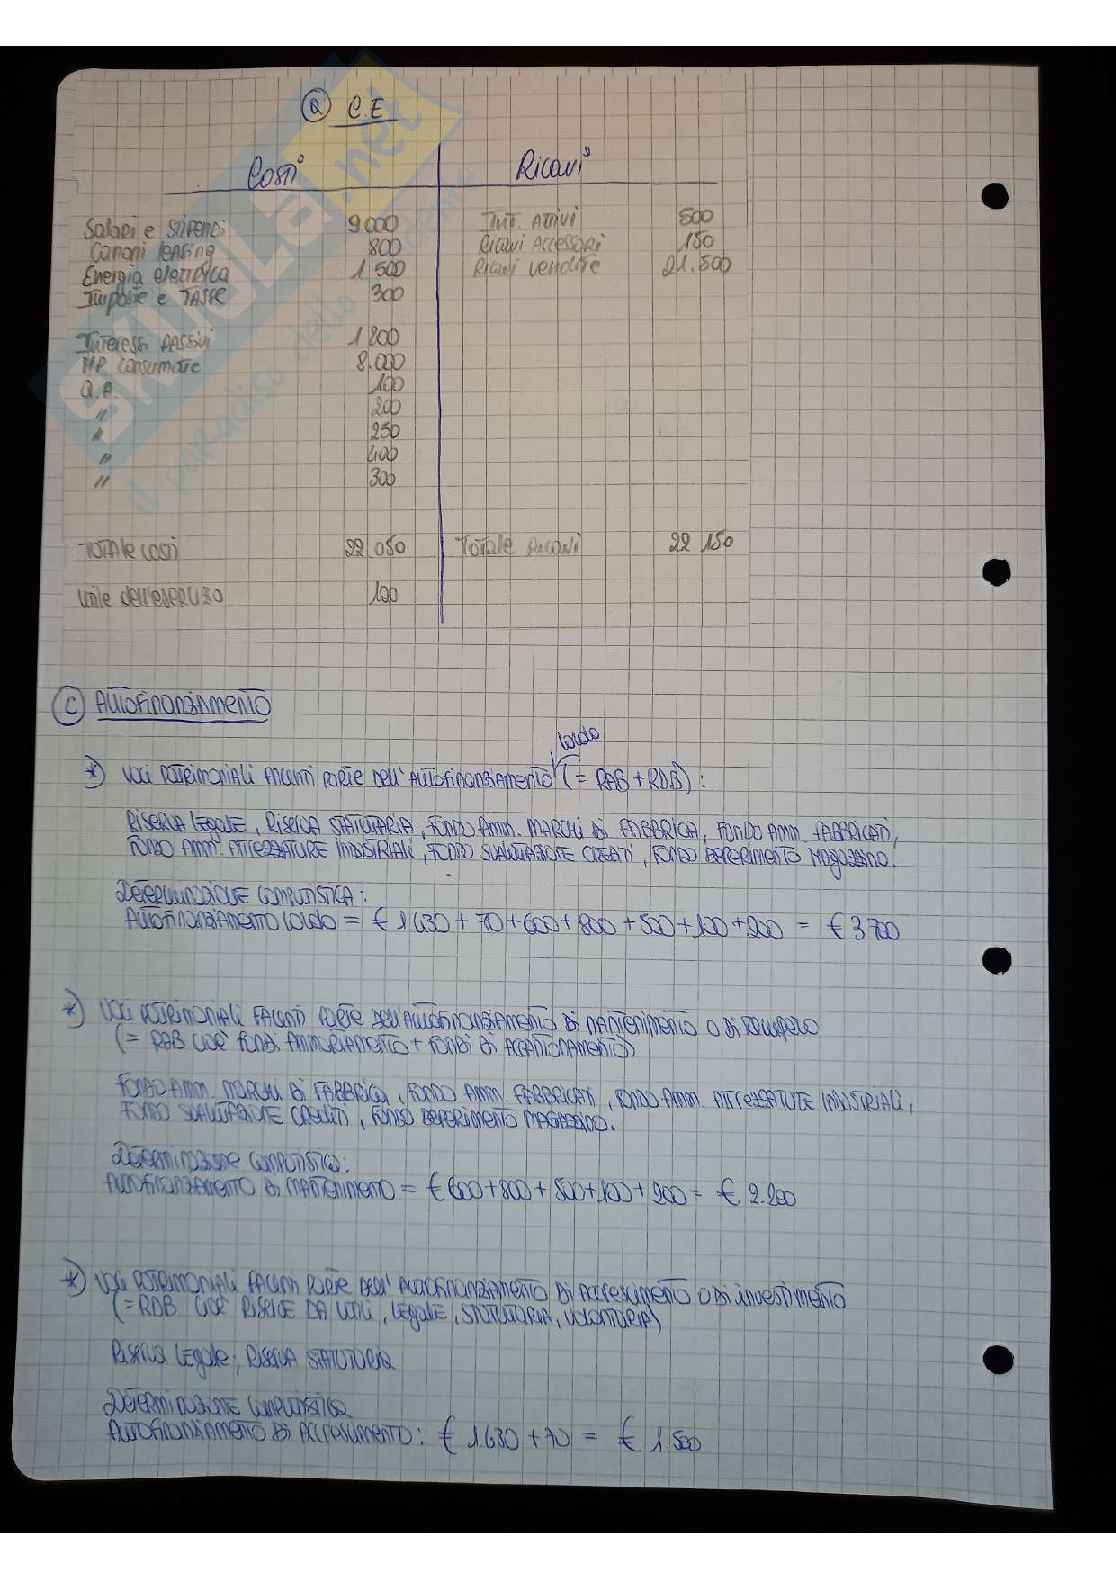 a C.E
Costi Ricavi
Salari e stipendi 9000 Int. Attivi 500
Canoni leasing 800 Ricavi Accessori 150
Energia elettrica 1 500 Ricavi vendite 21.500
Imposte e TASSE 300
Interessi passivi 1 200
MP consumate 8.000
Q.A. 100
" 200
" 250
" 400
" 300
Totale costi 22.050 Totale Ricavi 22 150
utile dell'esercizio 100
C AUTOFINANZIAMENTO
lordo
*) Voci PATRIMONIALI FACENTI PARTE DELL'AUTOFINANZIAMENTO (= RAB + RDB):
RISERVA LEGALE, RISERVA STATUTARIA, FONDO AMM. MARCHI DI FABBRICA, FONDO AMM. FABBRICATI,
FONDO AMM. ATTREZZATURE INDUSTRIALI, FONDO SVALUTAZIONE CREDITI, FONDO DEPERIMENTO MAGAZZINO.
DETERMINAZIONE COMPUTISTICA:
AUTOFINANZIAMENTO LORDO = € 1.430 + 70 + 600 + 800 + 500 + 100 + 200 = € 3 700
*) VOCI PATRIMONIALI FACENTI PARTE DELL'AUTOFINANZIAMENTO DI MANTENIMENTO O DI
(= RAB CIOÈ FONDI AMMORTAMENTO + FONDI DI ACCANTONAMENTO)
FONDO AMM. MARCHI DI FABBRICA, FONDO AMM. FABBRICATI, FONDO AMM. ATTREZZATURE INDUSTRIALI,
FONDO SVALUTAZIONE CREDITI, FONDO DEPERIMENTO MAGAZZINO.
Determinazione computistica:
AUTOFINANZIAMENTO DI MANTENIMENTO = € 600 + 800 + 500 + 100 + 200 = € 2.200
*) VOCI PATRIMONIALI FACENTI PARTE DELL'AUTOFINANZIAMENTO DI ACCRESCIMENTO O DI investimento
(= RDB CIOÈ RISERVE DA UTILI, LEGALE, STATUTARIA, VOLONTARIA)
RISERVA LEGALE, RISERVA STATUTARIA
DETERMINAZIONE COMPUTISTICA
AUTOFINANZIAMENTO DI ACCRESCIMENTO: € 1.430 + 70 = € 1.500
SKUOLA.net